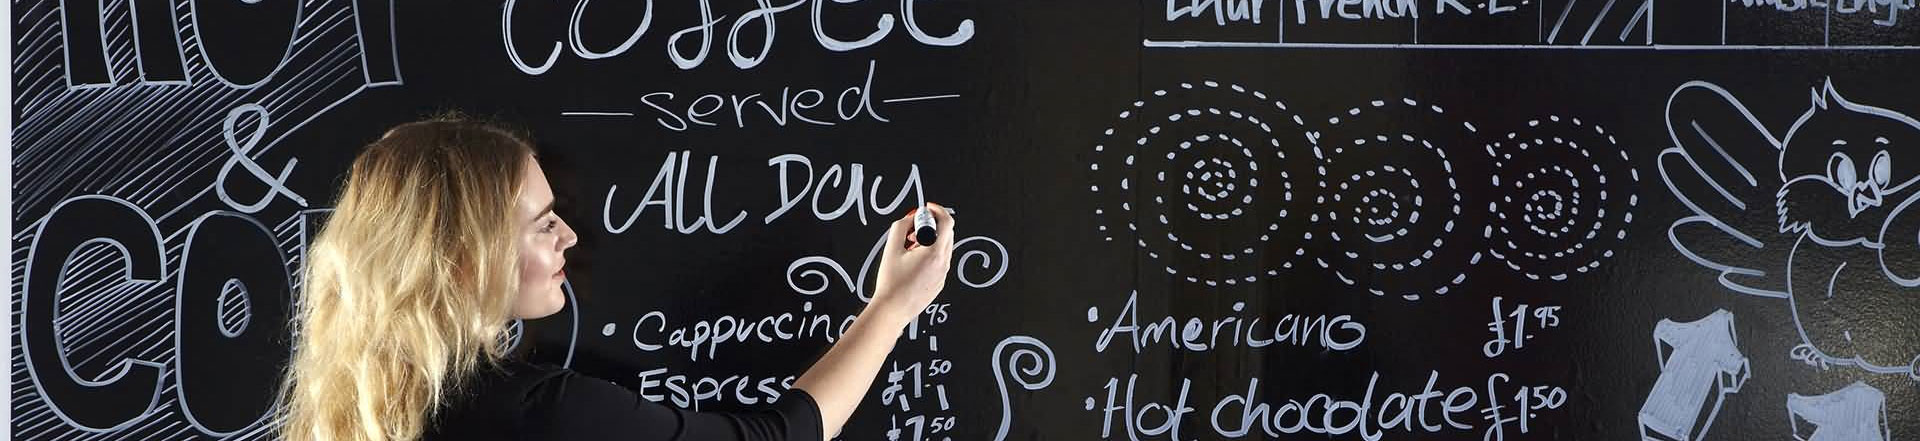 HOT
&
CO
Coffee
served
All Day
• Cappuccino .95
• Espress £1.50
£1.50
French R.E.
• Americano £1.95
• Hot chocolate £1.50